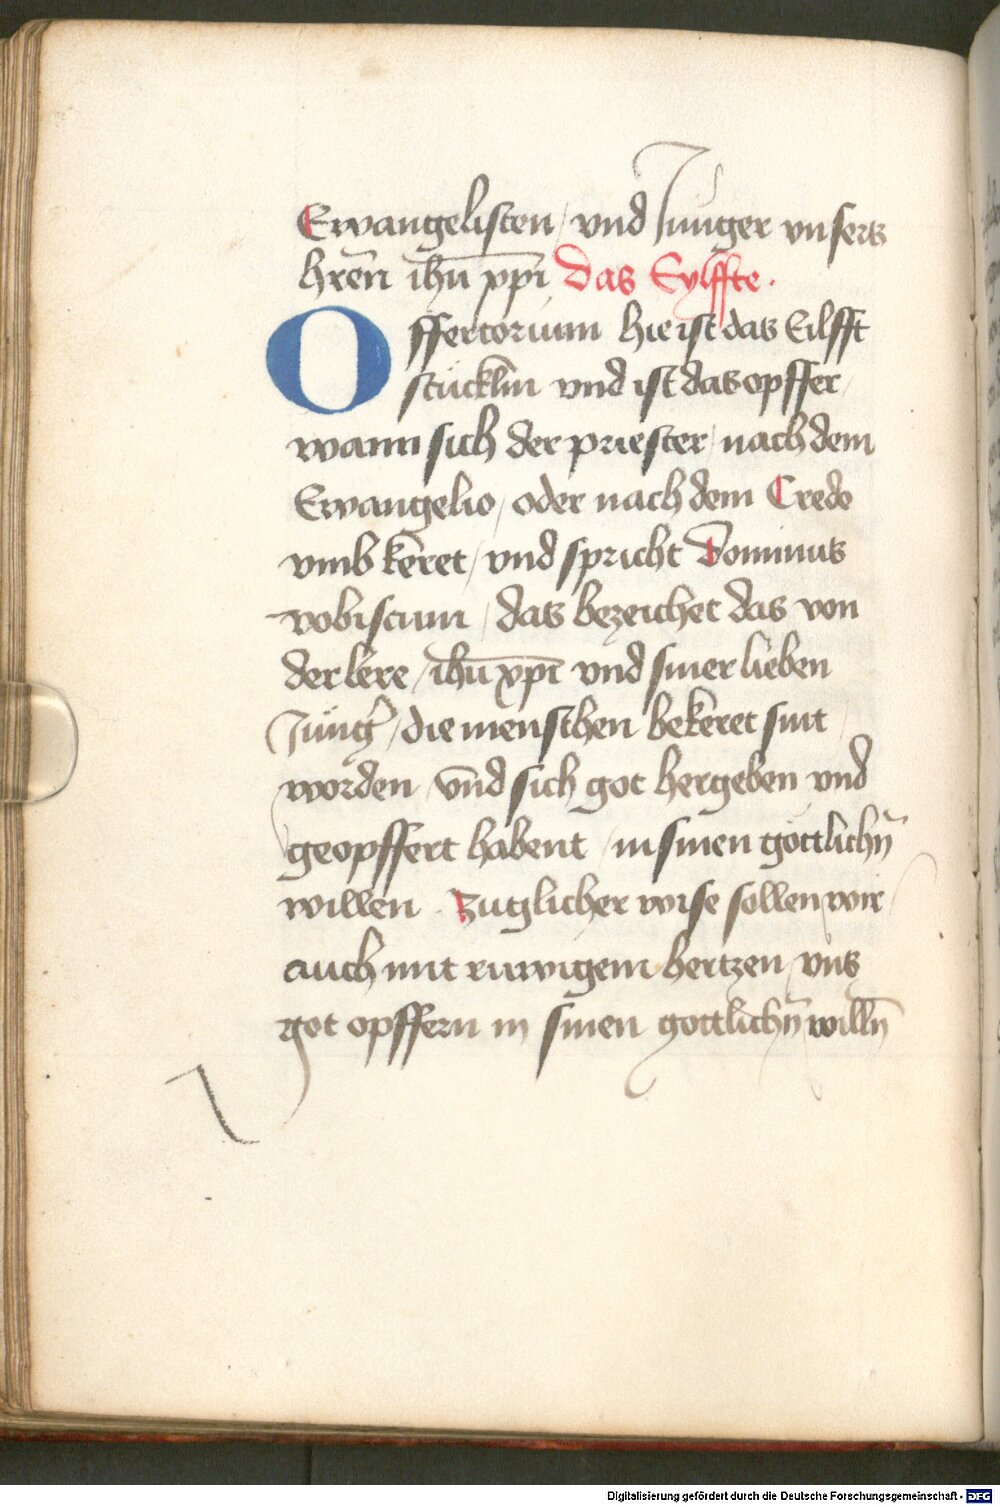 Ewangelisten / vnd Junger vnsers
hrēn ihū xp̄i Das Eylffte ·
Offertorium hie ist das Eilfft
stücklin vnd ist das opffer /
wann sich der priester / nach dem
Ewangelio / oder nach dem Credo
vmb keret / vnd spricht Dominus
vobiscum / das bezeichet das von
der lere / ihū xp̄i vnd siner lieben
Jüng̃ / die menschen bekeret sint /
worden / vnd sich got hergeben vnd
geopffert habent / in sinen göttlichn̄
willen · Zuglicher wise sollen wir /
auch mit ruwigem hertzen / vns
got opffern in sinen gottlichn̄ willn̄
Digitalisierung gefördert durch die Deutsche Forschungsgemeinschaft - DFG